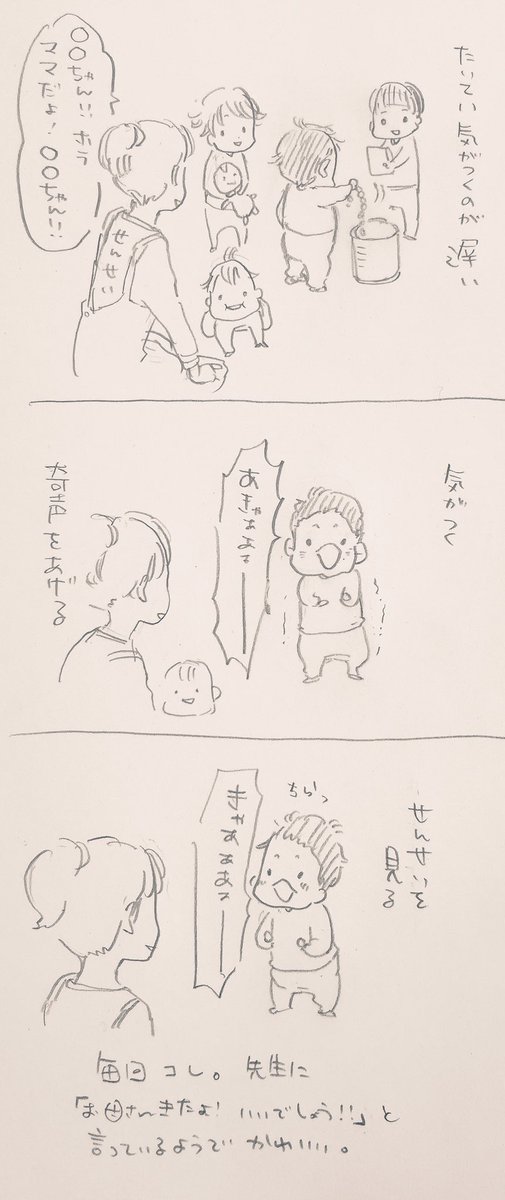 たいてい気がつくのが遅い
〇〇ちゃん!!ホラ
ママだよ!〇〇ちゃん!!
せんせい
気がつく
あきゃあぁぁー
奇声をあげる
せんせいを
見る
ちらっ
きゃあぁぁー
毎回コレ。先生に
「お母さんきたよ!いいでしょう!!」と
言っているようでかわいい。